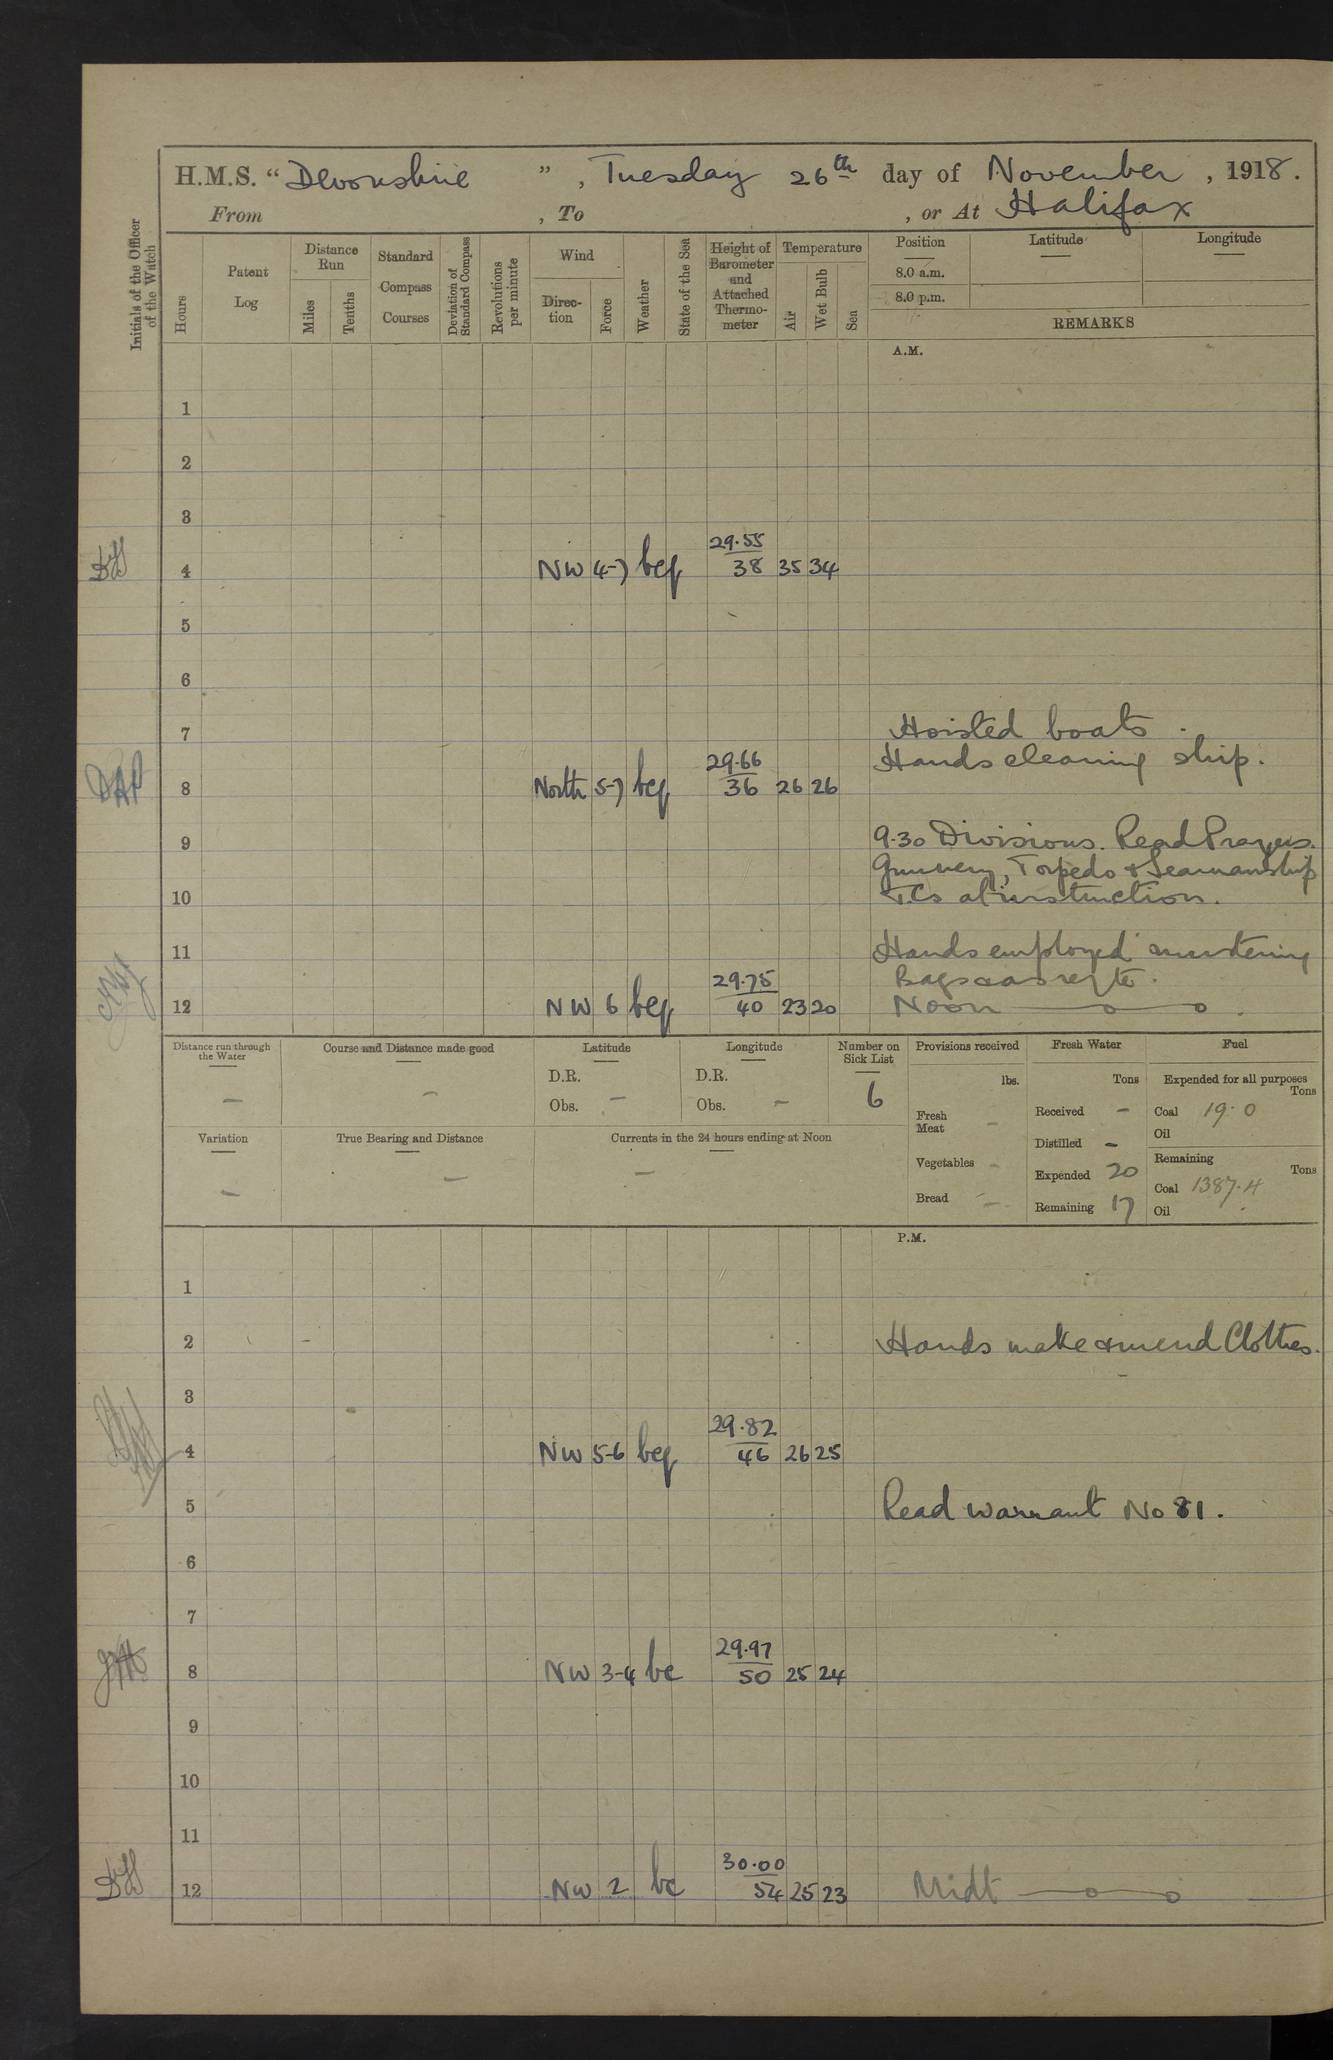 H.M.S. “Devonshire ” , Tuesday 26th day of November , 1918.
From , To , or At Halifax
Initials of the Officer of the Watch
Hours
Patent Log
Distance Run
Miles
Tenths
Standard Compass Courses
Deviation of Standard Compass
Revolutions per minute
Wind
Direc-tion
Force
Weather
State of the Sea
Height of Barometer and Attached Thermo-meter
Temperature
Air
Wet Bulb
Sea
Position Latitude Longitude
8.0 a.m.
8.0 p.m.
REMARKS
A.M.
1
2
3
29.55
4 NW 4-7 bcq 38 35 34
5
6
7 Hoisted boats.
29.66 Hands cleaning ship.
8 North 5-7 bcq 36 26 26
9 9.30 Divisions. Read Prayers.
Gunnery, Torpedo & Seamanship
10 T.Cs at instruction.
11 Hands employed mustering
29.75 Bags as
12 NW 6 bcq 40 23 20 Noon
Distance run through the Water –
Course and Distance made good –
Latitude
D.R.
Obs. –
Longitude
D.R.
Obs. –
Number on Sick List
6
Provisions received
lbs.
Fresh Meat –
Vegetables –
Bread –
Fresh Water
Tons
Received –
Distilled –
Expended 20
Remaining 17
Fuel
Expended for all purposes
Tons
Coal 19.0
Oil
Remaining
Tons
Coal 1387.4
Oil
Variation –
True Bearing and Distance –
Currents in the 24 hours ending at Noon –
P.M.
1
2 Hands make & mend Clothes.
3
29.82
4 NW 5-6 bcq 46 26 25
5 Read warrant No 81.
6
7
29.97
8 NW 3-4 bc 50 25 24
9
10
11
30.00
12 NW 2 bc 54 25 23 Midt